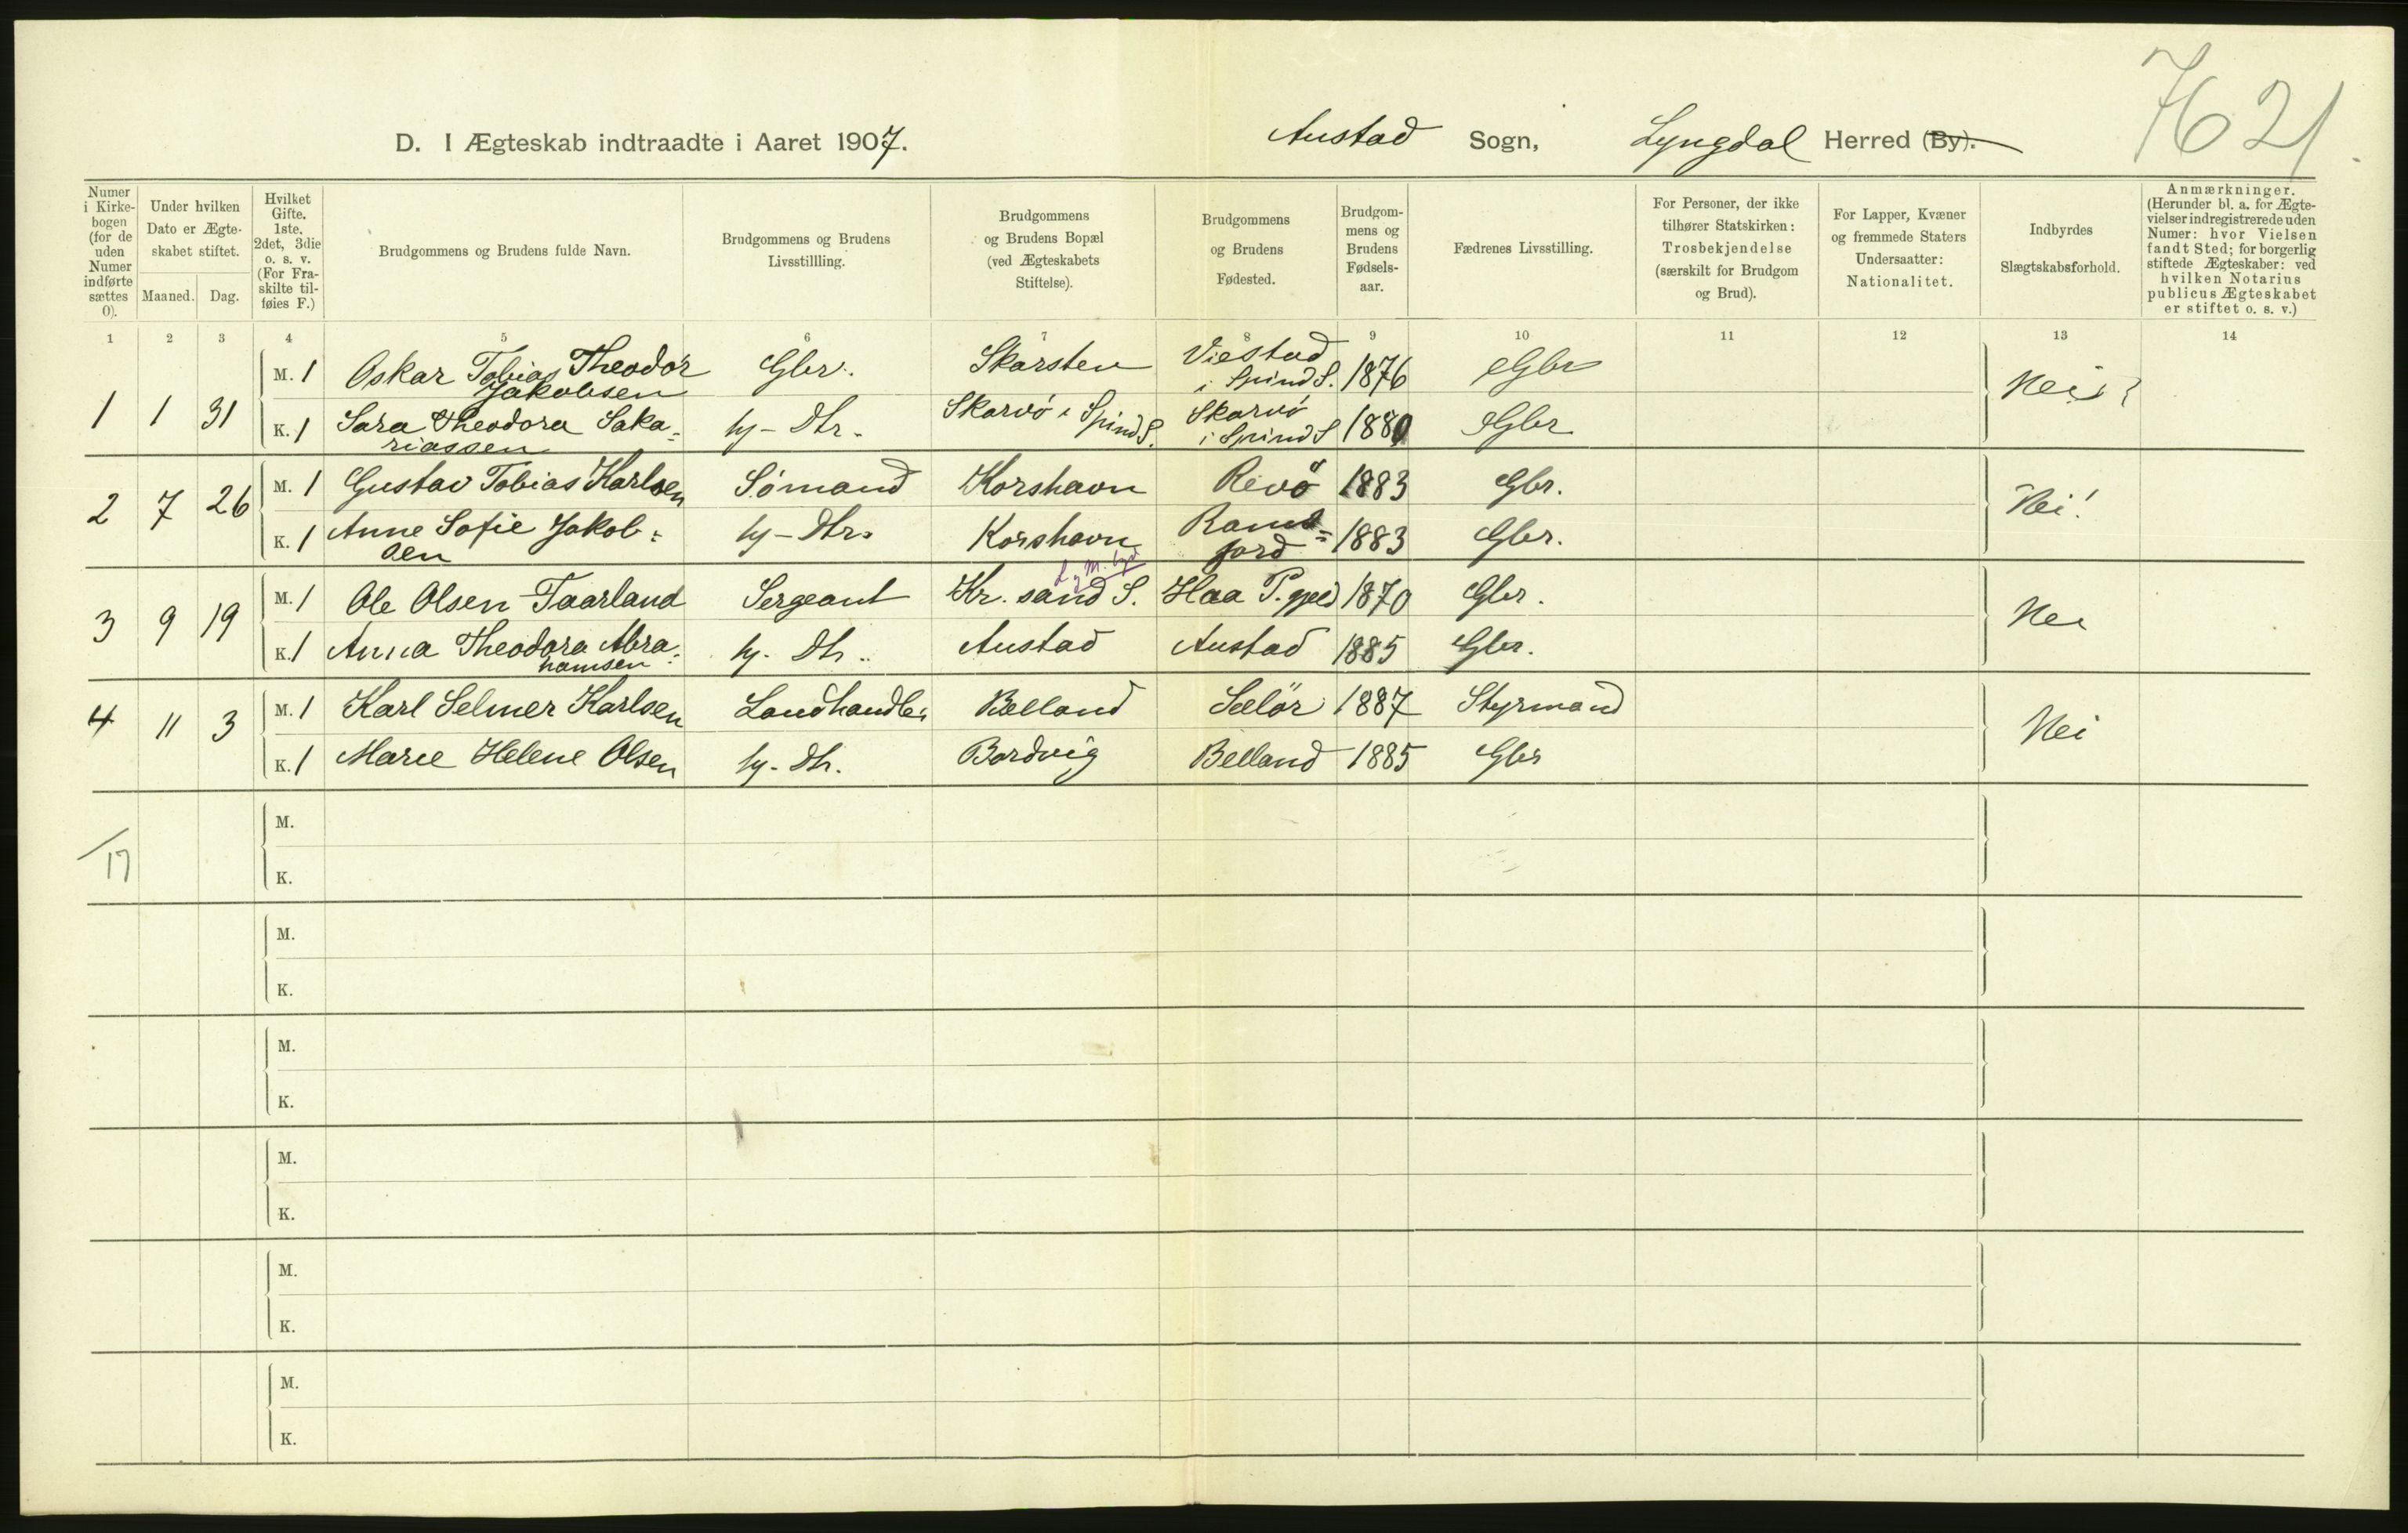 7621.
D. I Ægteskab indtraadte i Aaret 1907. Austad Sogn, Lyngdal Herred (By).
Numer i Kirke-bogen (for de uden Numer indførte sættes 0).
Under hvilken Dato er Ægte-skabet stiftet.
Maaned. Dag.
Hvilket Gifte. 1ste, 2det, 3die o. s. v. (For Fra-skilte til-føies F.)
Brudgommens og Brudens fulde Navn.
Brudgommens og Brudens Livsstillling.
Brudgommens og Brudens Bopæl (ved Ægteskabets Stiftelse).
Brudgommens og Brudens Fødested.
Brudgom-mens og Brudens Fødsels-aar.
Fædrenes Livsstilling.
For Personer, der ikke tilhører Statskirken: Trosbekjendelse (særskilt for Brudgom og Brud).
For Lapper, Kvæner og fremmede Staters Undersaatter: Nationalitet.
Indbyrdes Slægtskabsforhold.
Anmærkninger. (Herunder bl. a. for Ægte-vielser indregistrerede uden Numer: hvor Vielsen fandt Sted; for borgerlig stiftede Ægteskaber: ved hvilken Notarius publicus Ægteskabet er stiftet o. s. v.)
1 2 3 4 5 6 7 8 9 10 11 12 13 14
1 1 31 M. 1 Oskar Tobias Theodor Jakobsen Gbr. Skarsten Viestad i Spind S. 1876 Gbr Nei
K. 1 Sara Theodora Saka-riassen hj - Dtr. Skarvö i Spind S. Skarvö i Spind S 1880 Gbr
2 7 26 M. 1 Gustav Tobias Karlsen Sömand Korshavn Revö 1883 Gbr. Nei!
K. 1 Anne Sofie Jakob-sen hj - Dtr. Korshavn 1883 Gbr.
3 9 19 M. 1 Ole Olsen Taarland Sergeant Kr. sand S. Haa P.gjeld 1870 Gbr. Nei
K. 1 Anna Theodora Abra-hamsen hj. Dtr. Austad Austad 1885 Gbr.
4 11 3 M. 1 Karl Selmer Karlsen Landhandler Belland Selör 1887 Styrmand Nei
K. 1 Marie Helene Olsen hj. Dtr. Bordvig Belland 1885 Gbr
M.
17
K.
M.
K.
M.
K.
M.
K.
M.
K.
M.
K.